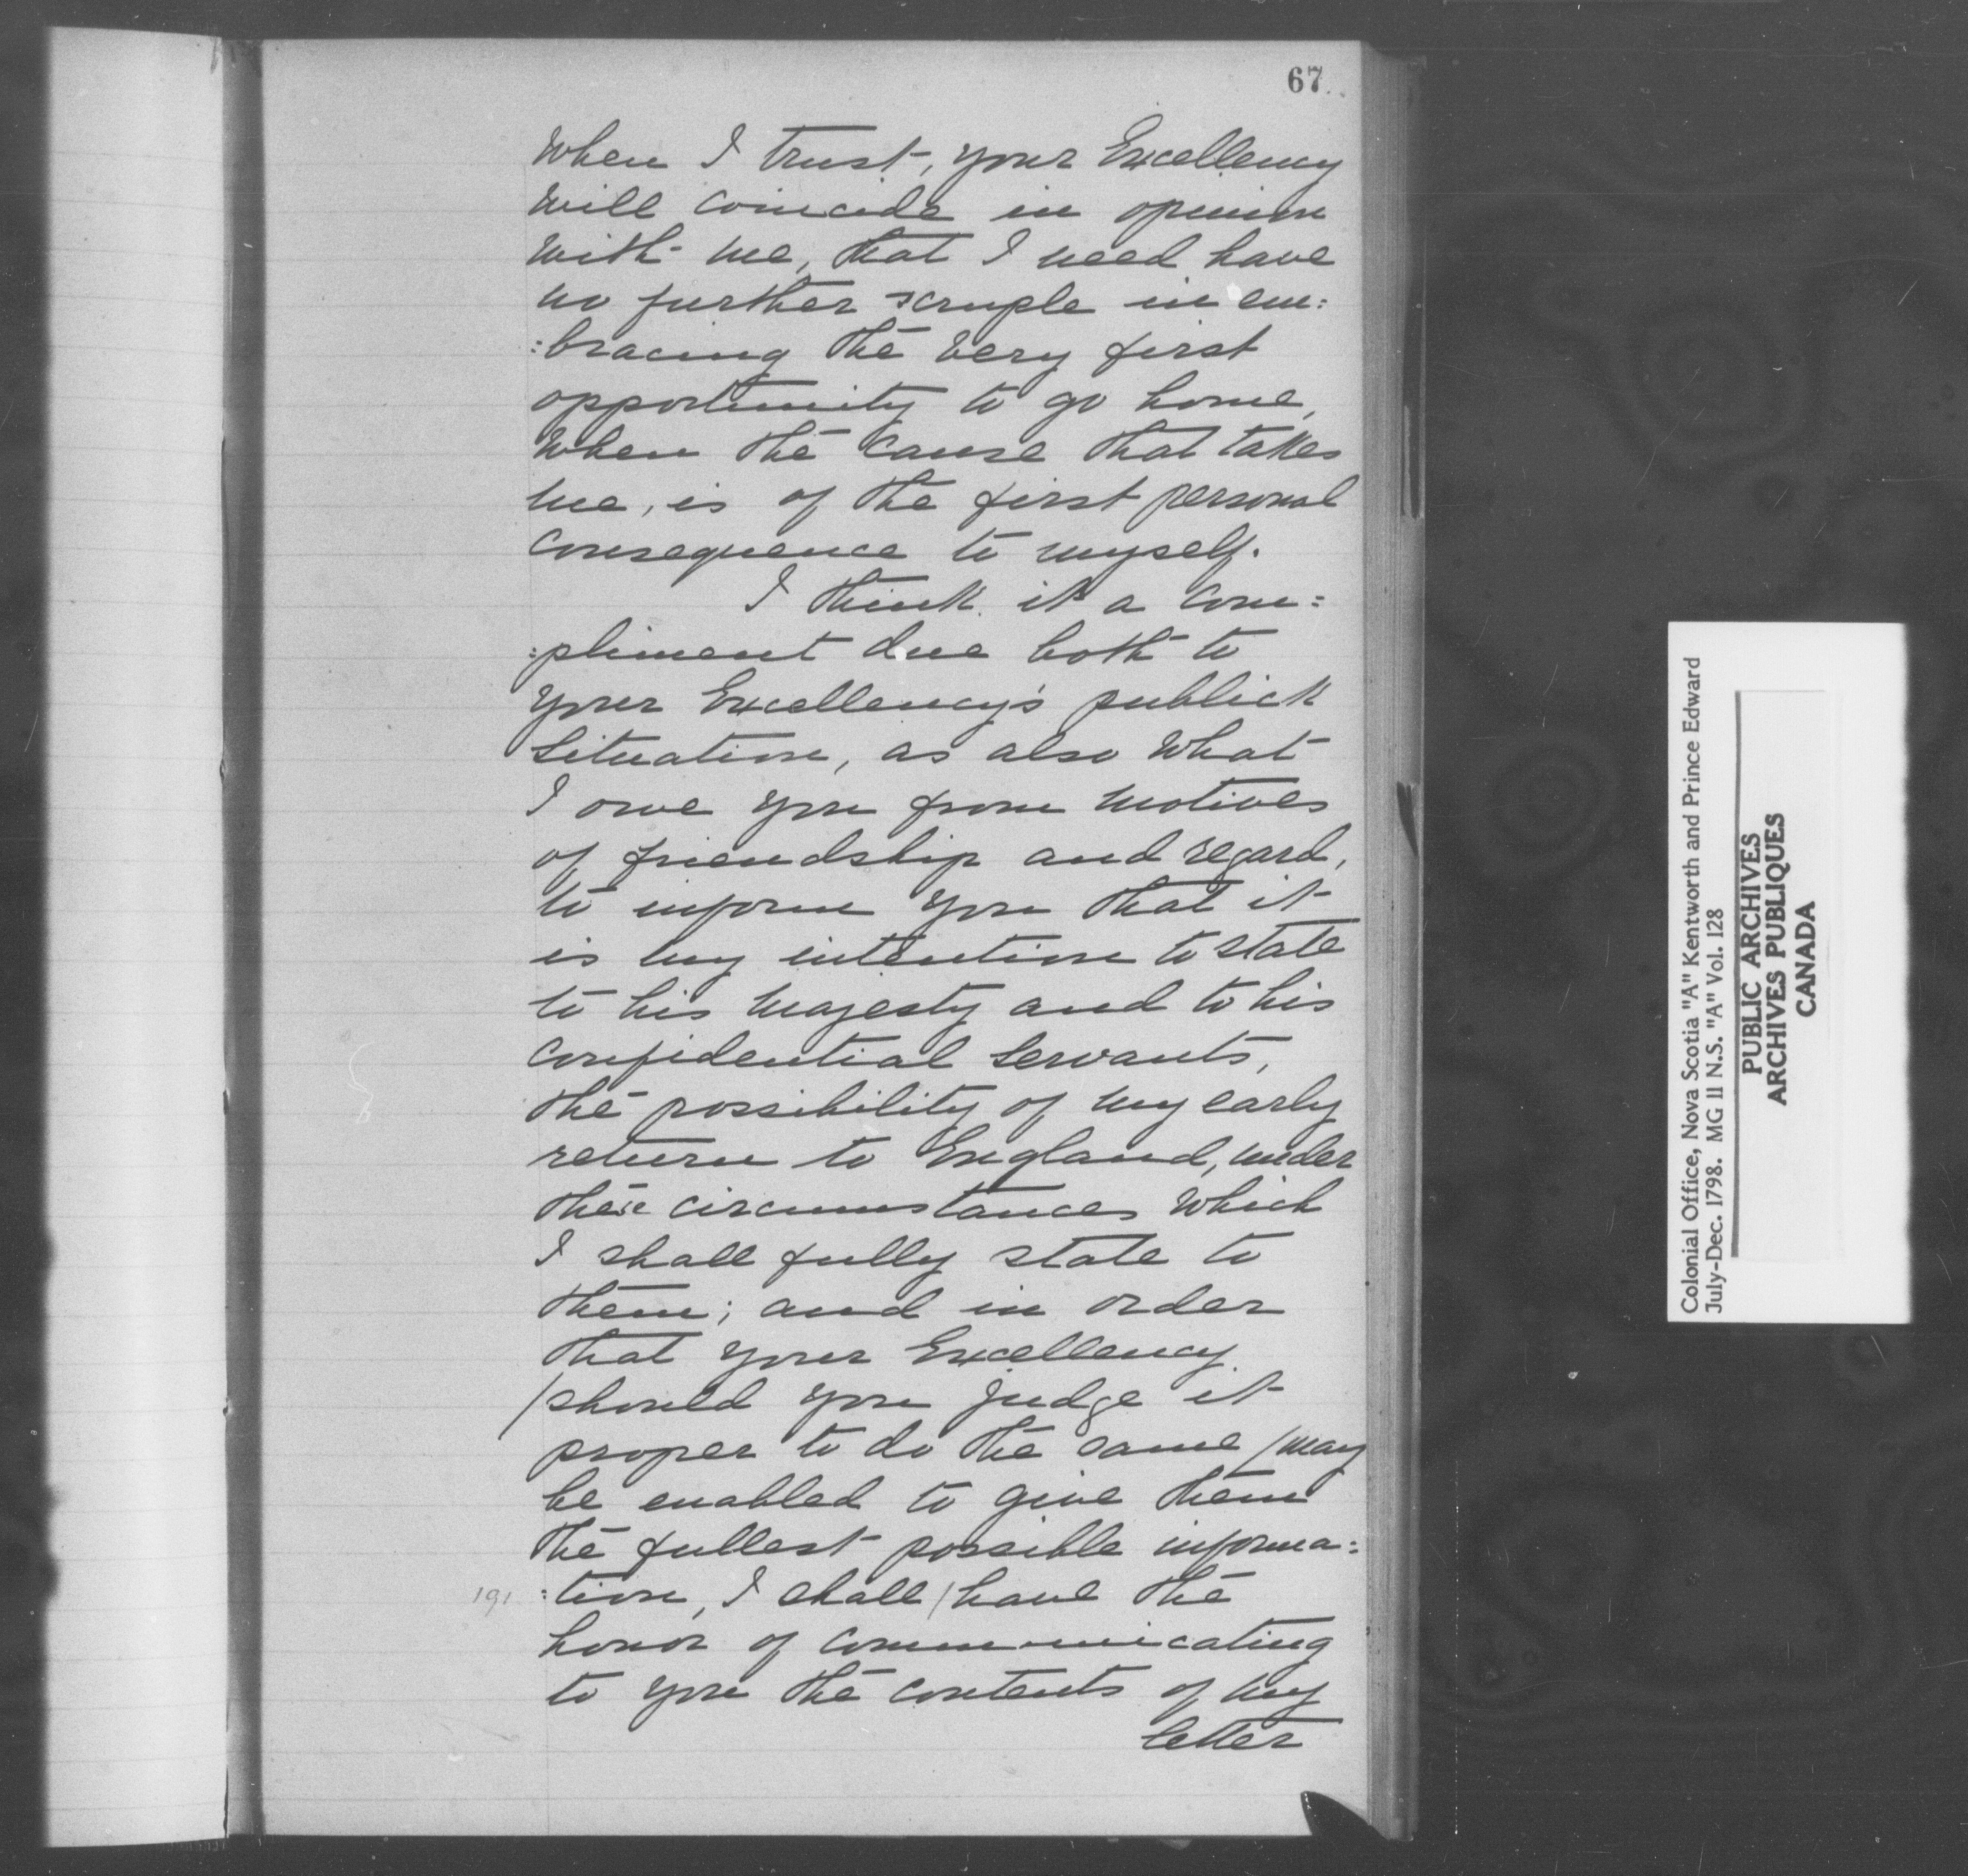 67
When I trust, your Excellency
will coincide in opinion
with me, that I need have
no further scruple in em:
:bracing the very first
opportunity to go home,
when the cause that takes
me, is of the first personal
consequence to myself.
I think it a com:
:pliment due both to
your Excellency's publick
situation, as also what
I owe you from motives
of friendship and regard,
to inform you that it
is my intention to state
to his Majesty and to his
confidential servants,
the possibility of my early
return to England, under
these circumstances which
I shall fully state to
them; and in order
that your Excellency
/should you judge it
proper to do the same/may
be enabled to give them
the fullest possible informa:
191 :tion, I shall/have the
honor of communicating
to you the contents of my
letter
Colonial Office, Nova Scotia "A" Kentworth and Prince Edward
July-Dec. 1798. MG II N.S. "A" Vol. 128
PUBLIC ARCHIVES
ARCHIVES PUBLIQUES
CANADA